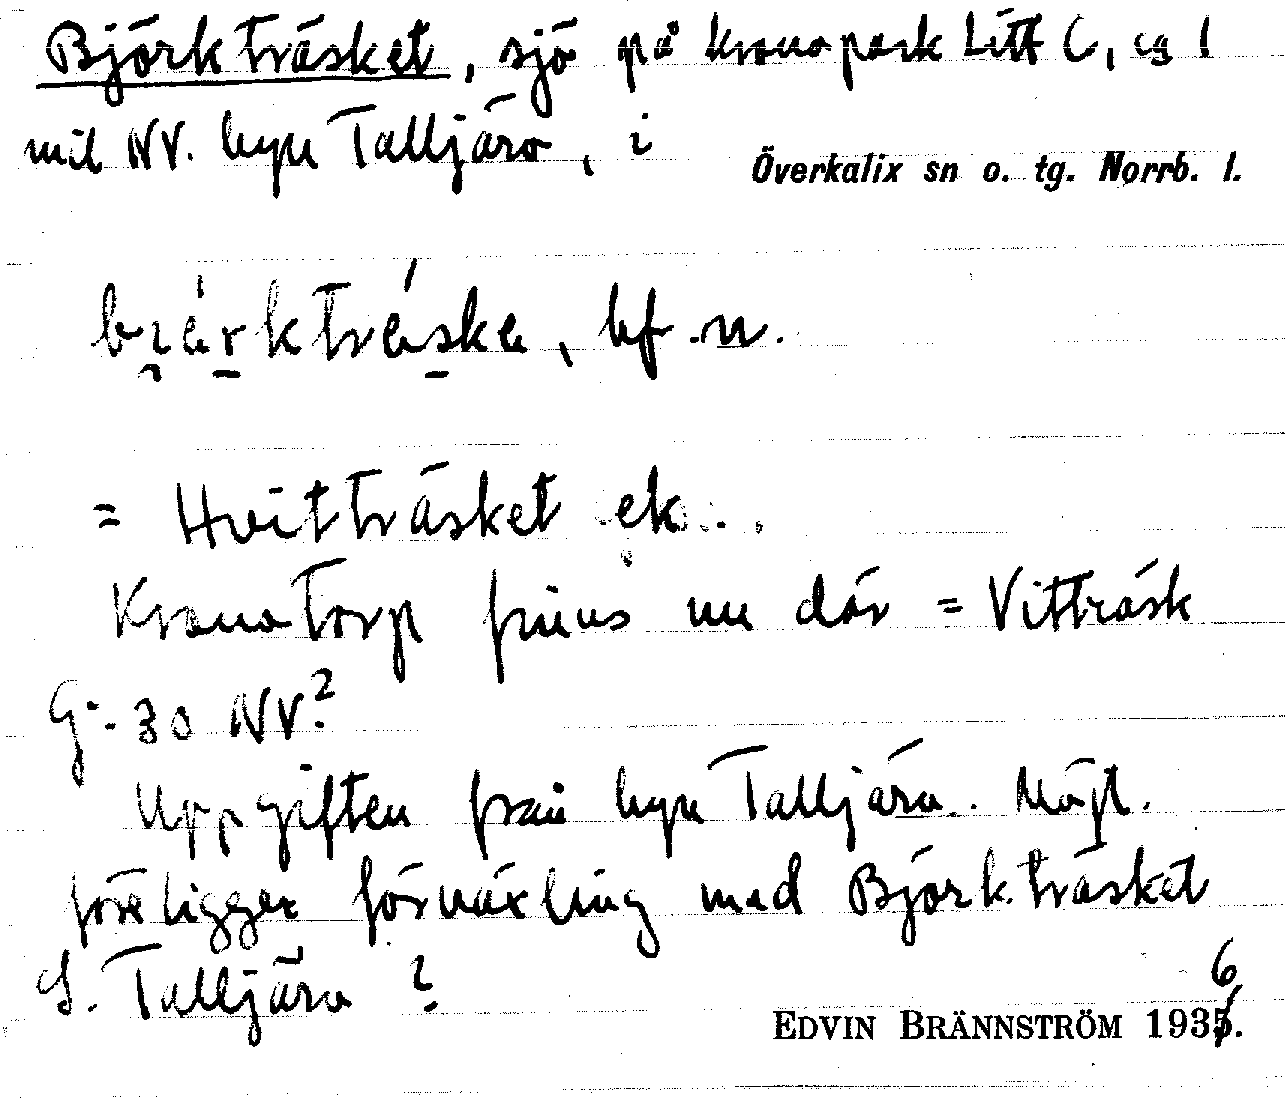 Björkträsket, sjö på kronopark Litt C, ca 1
mil NV. byn Talljärv, i
Överkalix sn o. tg. Norrb. l.
bi̯ärkträske, bf. n.
= Hvitträsket ek.
Kronotorp finns nu där = Vitträsk
G:- 30 NV?
Uppgiften från byn Talljärv. Möjl.
föreligger förväxling med Björkträsket
S. Talljärv ?
EDVIN BRÄNNSTRÖM 1936.